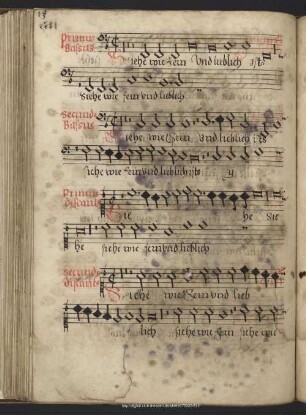 Primus
Bassus
Siehe wie fein Vnd lieblich ists
Siehe wie fein vnd lieblich
Secund
Bassus
Siehe wie fein vnd lieblich ists
siehe wie fein vnd lieblich ists
Primus
discant
Sie he sie
he siehe wie fein vnd lieblich
Secund
discant
Siehe wie fein vnd lieb
lich siehe wie fein siehe wie